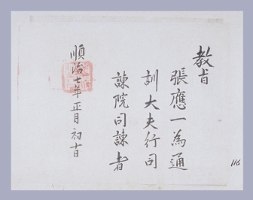 教旨
張應一為通
訓大夫行司
諫院司諫者
順治七年正月初十日